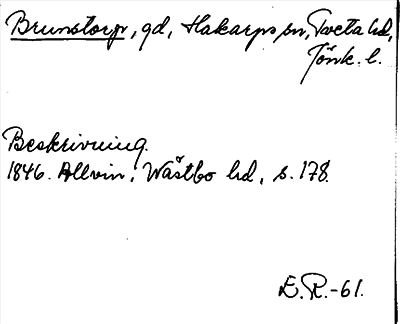 Brunstorp, gd, Hakarps sn, Tveta hd,
Jönk. l.
Beskrivning.
1846. Allvin, Wästbo hd, s. 178.
E.R.-61.